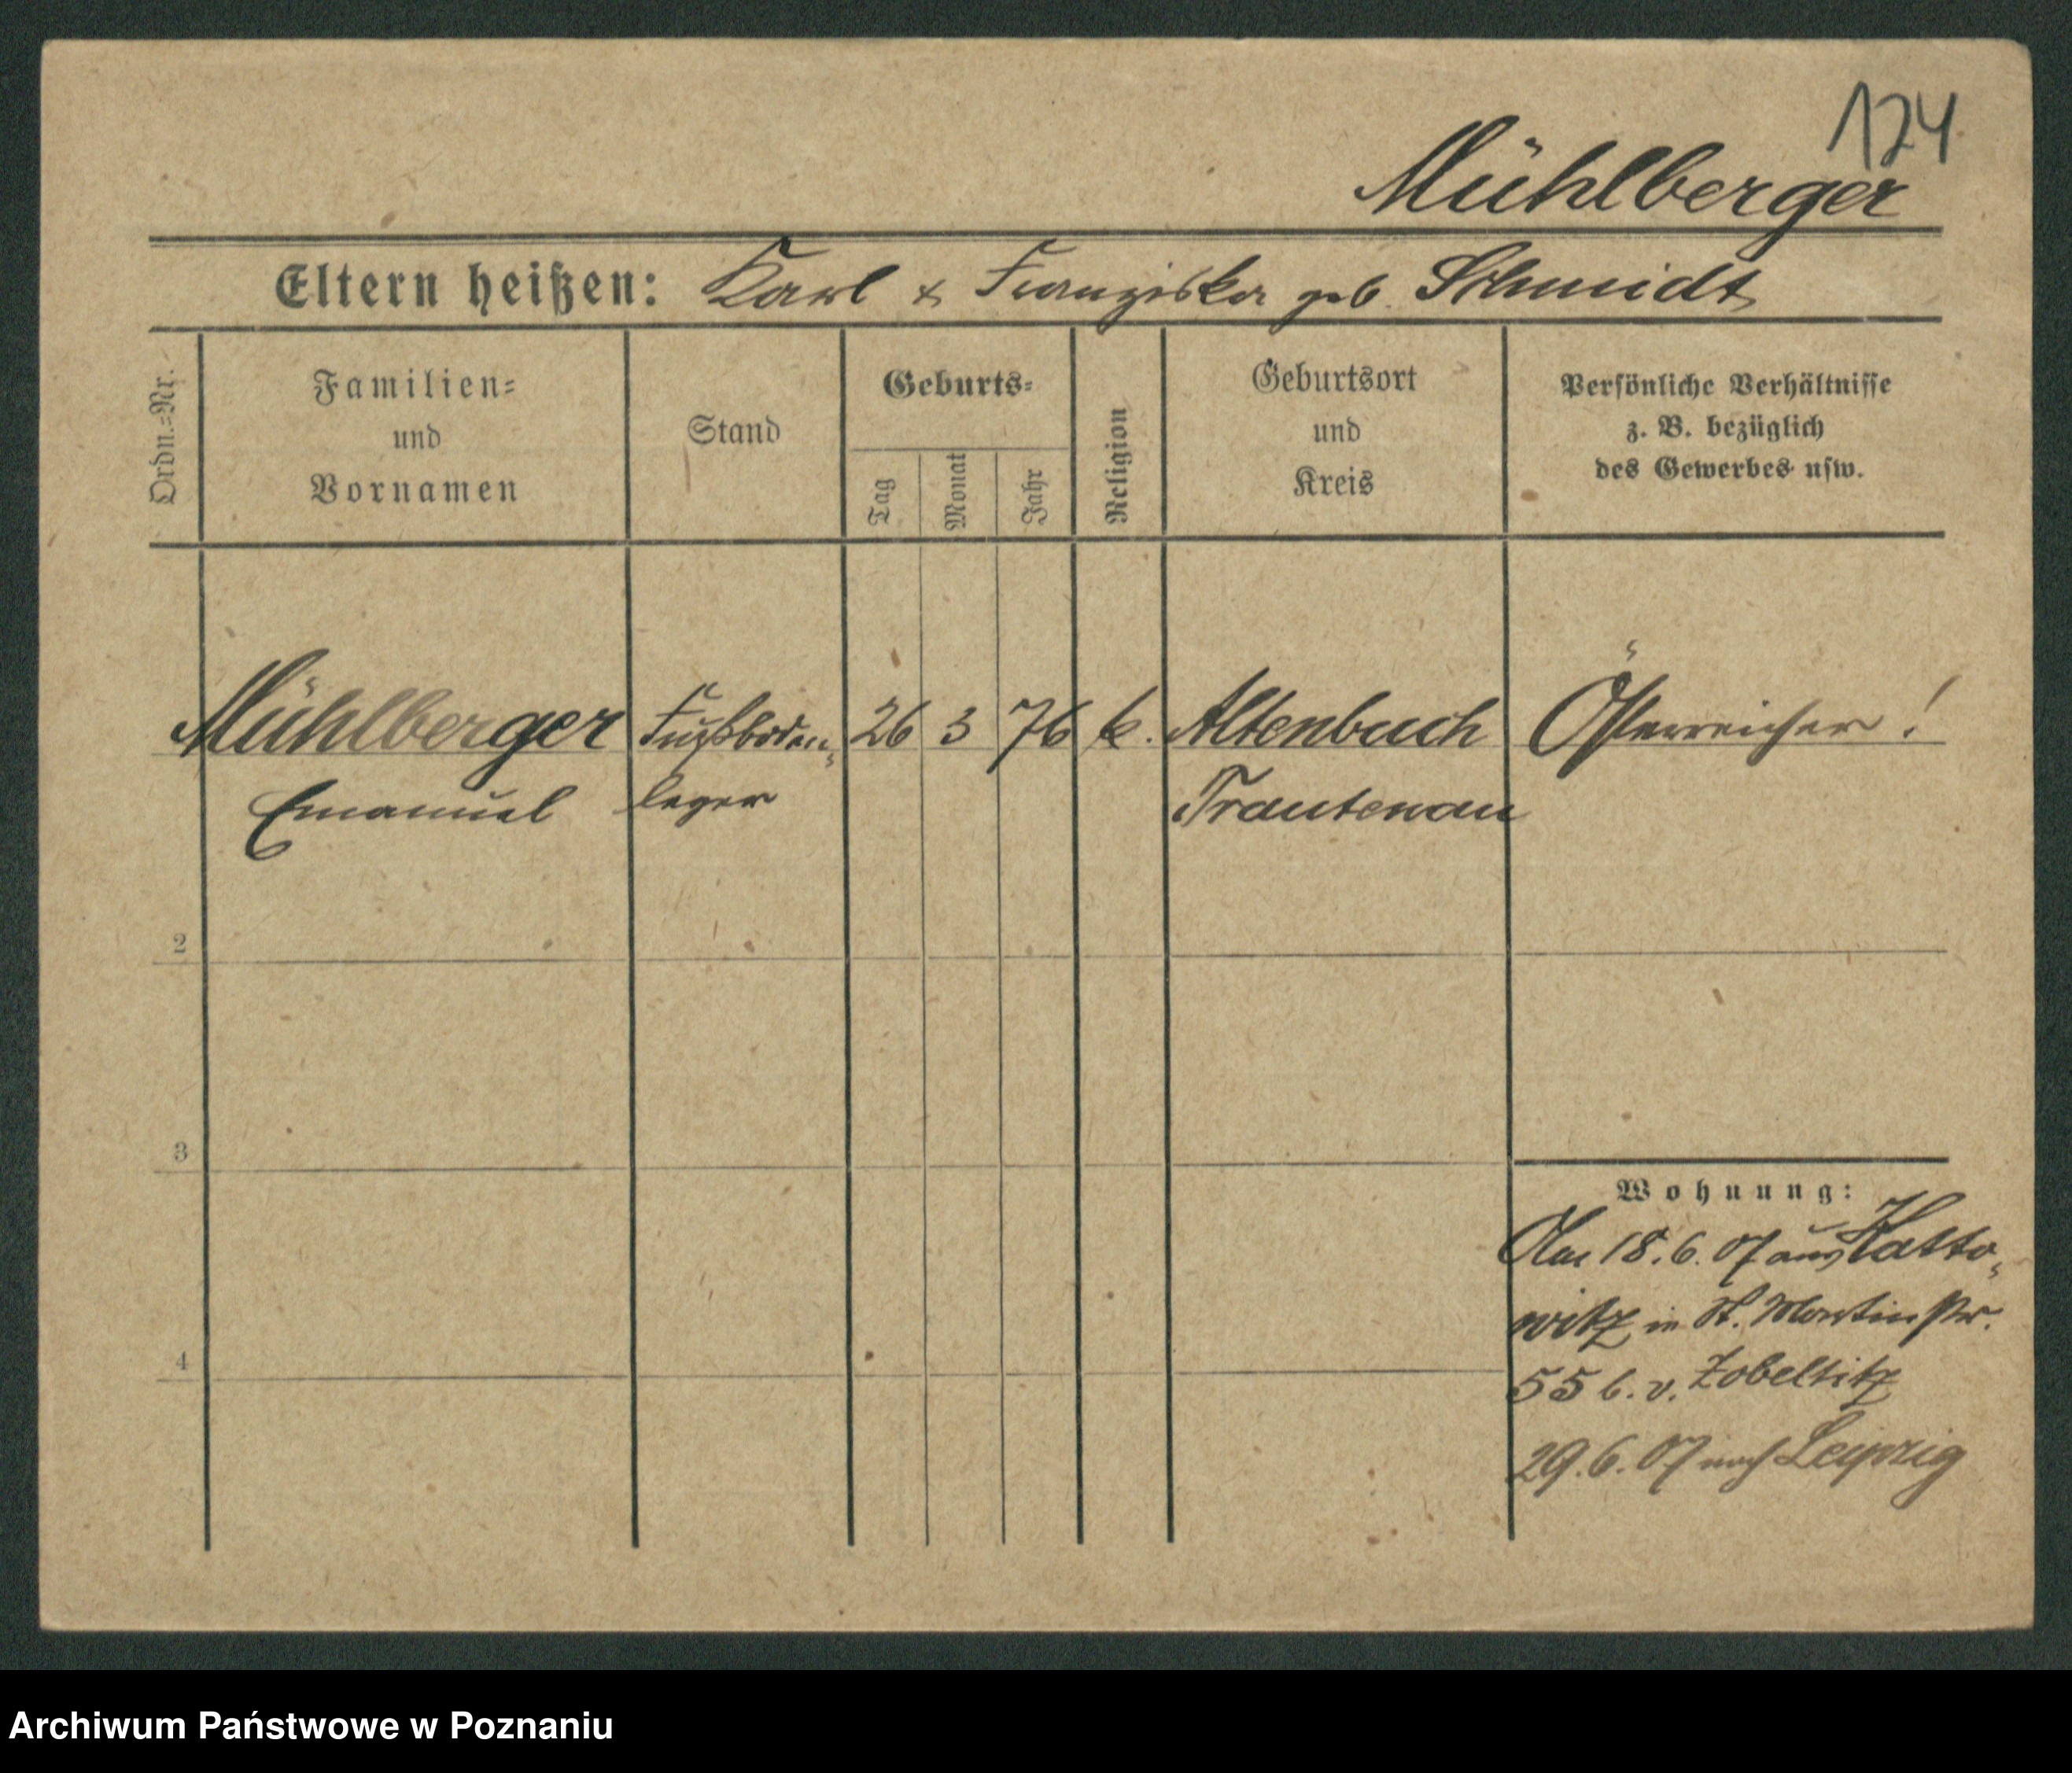 124
Mühlberger
Eltern heißen: Karl & Franziska geb. Schmidt
Ordn.=Nr.
Familien=
und
Vornamen
Stand
Geburts=
Tag
Monat
Jahr
Religion
Geburtsort
und
Kreis
Persönliche Verhältnisse
z. B. bezüglich
des Gewerbes usw.
Mühlberger Fußboden= 26 3 76 k. Altenbuch Österreicher!
Emanuel leger Trautenau
2
3
4
Wohnung:
Am 18.6.07 aus Katto=
witz in St. Martinstr.
55 b. v. Zobeltitz
29.6.07 nach Leipzig
Archiwum Państwowe w Poznaniu